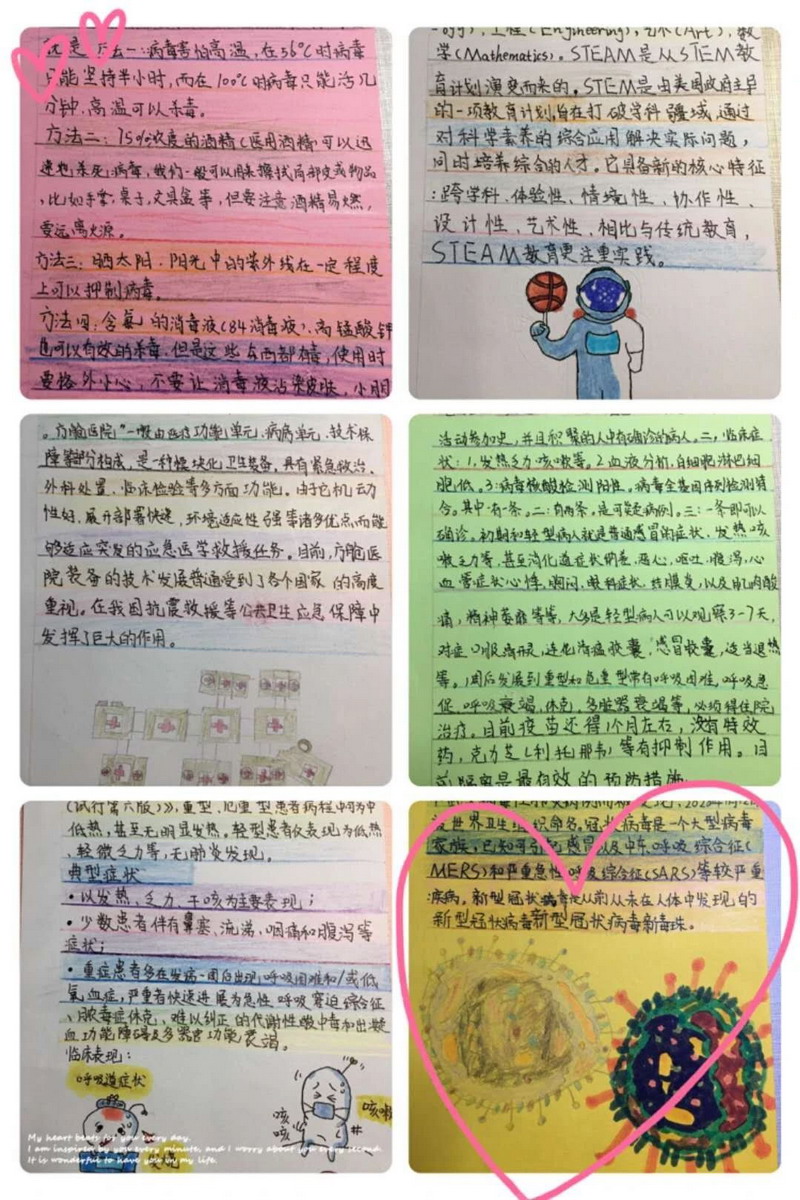 就是方法一:病毒害怕高温,在56℃时病毒
只能坚持半小时,而在100℃时病毒只能活几
分钟.高温可以杀毒。
方法二:75%浓度的酒精(医用酒精可以迅
速地杀死病毒,我们一般可以用来擦拭局部皮或物品
,比如手掌,桌子,文具盒等,但要注意酒精易燃,
要远离火源。
方法三:晒太阳.阳光中的紫外线在一定程度
上可以抑制病毒。
方法四:含氯的消毒液(84消毒液)、高锰酸钾
也可以有效的杀毒.但是这些东西都有毒,使用时
要格外小心,不要让消毒液沾染皮肤,小朋
的),工程(Engineering),艺术(Art),数
学(Mathematics)。STEAM是从STEM教
育计划演变而来的。STEM是由美国政府主导
的一项教育计划,旨在打破学科疆域,通过
对科学素养的综合应用解决实际问题,
同时培养综合的人才。它具备新的核心特征
:跨学科、体验性、情境性、协作性、
设计性、艺术性、相比与传统教育,
STEAM教育更注重实践。
。方舱医院"一般由医疗功能单元、病房单元、技术保
障等部分构成,是一种模块化卫生装备,具有紧急救治、
外科处置、临床检验等多方面功能。由于它机动
性好,展开部署快速,环境适应性强等诸多优点而能
够适应突发的应急医学救援任务。目前,方舱医
院装备的技术发展普遍受到了各个国家的高度
重视。在我国抗震救援等公共卫生应急保障中
发挥了巨大的作用。
活动参加史,并且积聚的人中有确诊的病人。二,临床症
状:1,发热乏力咳嗽等。2血液分析,白细胞淋巴细
胞低。3:病毒核酸检测阳性。病毒全基因序列检测符
合。其中有一条。二:有两条.是可疑病例。三:一条即可以
确诊。初期和轻型病人就是普通感冒的症状、发热咳
嗽乏力等,甚至消化道症状纳差,恶心,呕吐,腹泻,心
血管症状心悸、胸闷、眼科症状、结膜炎,以及肌肉酸
痛,精神萎靡等等,大多是轻型病人可以观察3-7天,
对症口服,连花清瘟胶囊,感冒胶囊,适当退热
等。1周后发展到重型和危重型常有呼吸困难,呼吸急
促,呼吸衰竭,休克,多脏器衰竭等,必须得住院
治疗。目前疫苗还得1个月左右,没有特效
药,克力芝(利托那韦)等有抑制作用。目
前隔离是最有效的预防措施
(试行第六版)》,重型、危重型患者病程中可为中
低热,甚至无明显发热。轻型患者仅表现为低热
、轻微乏力等,无肺炎发现。
典型症状
•以发热、乏力、干咳为主要表现;
•少数患者伴有鼻塞、流涕、咽痛和腹泻等
症状;
•重症患者多在发病一周后出现呼吸困难和/或低
氧血症,严重者快速进展为急性呼吸窘迫综合征
、脓毒症休克、难以纠正的代谢性酸中毒和出凝
血功能障碍及多器官功能衰竭。
临床表现:
呼吸道症状
咳
咳
咳嗽
My heart beats for you every day.
I am inspired by you every minute, and I worry about you every second.
It is wonderful to have you in my life.
被世界卫生组织命名。冠状病毒是一个大型病毒
家族,已知可引起感冒以及中东呼吸综合征(
MERS)和严重急性呼吸综合征(SARS)等较严重
疾病。新型冠状病毒是从前从未在人体中发现的
新型冠状病毒新型冠状病毒新毒珠。